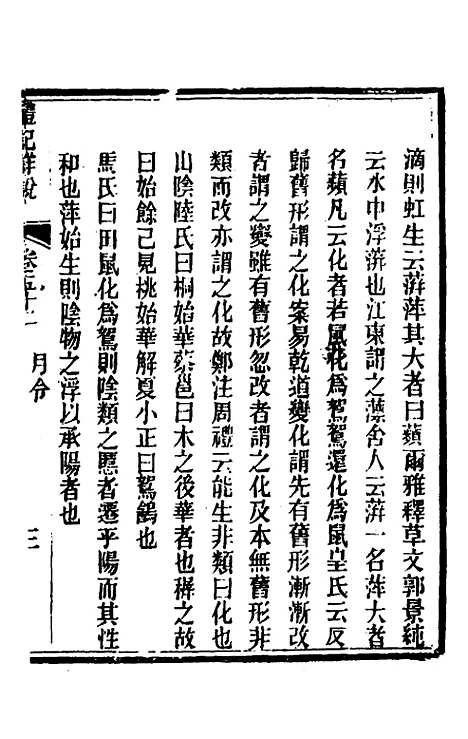 滴則虹生云蓱萍其大者曰蘋爾雅釋草文郭景純
云水中浮蓱也江東謂之薸舍人云蓱一名萍大者
名蘋凡云化者若鼠化爲鴽鴽還化爲鼠皇氏云反
歸舊形謂之化案易乾道變化謂先有舊形漸漸改
者謂之變雖有舊形忽改者謂之化及本無舊形非
類而改亦謂之化故鄭注周禮云能生非類曰化也
山陰陸氏曰桐始華蔡邕曰木之後華者也穉之故
曰始餘已見桃始華解夏小正曰鴽鷂也
馬氏曰田鼠化爲鴽則陰類之慝者遷乎陽而其性
和也萍始生則陰物之浮以承陽者也
禮記詳說
月令
三